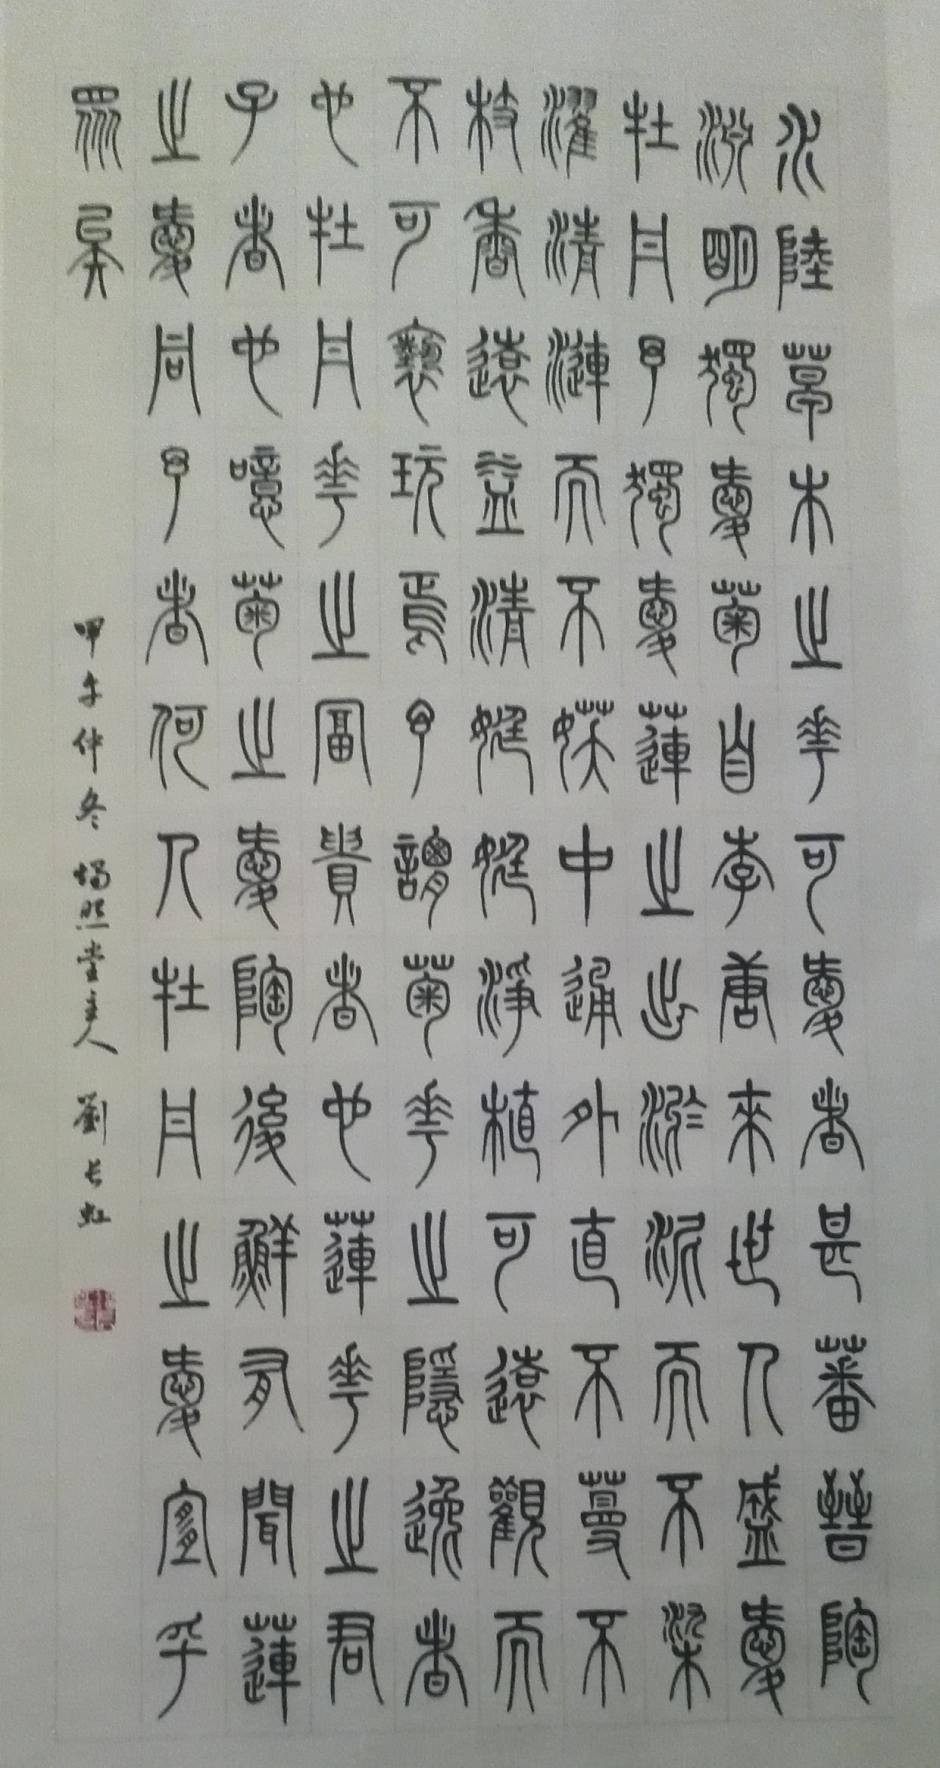 水陸草木之華可愛者甚蕃晉陶
淵明獨愛菊自李唐來世人盛愛
牡丹予獨愛蓮之出淤泥而不染
濯清漣而不妖中通外直不蔓不
枝香遠益清婷婷淨植可遠觀而
不可褻玩焉予謂菊華之隱逸者
也牡丹華之富貴者也蓮華之君
子者也噫菊之愛陶後鮮有聞蓮
之愛同予者何人牡丹之愛宜乎
眾矣
甲午仲冬 燭照堂主人 劉長虹